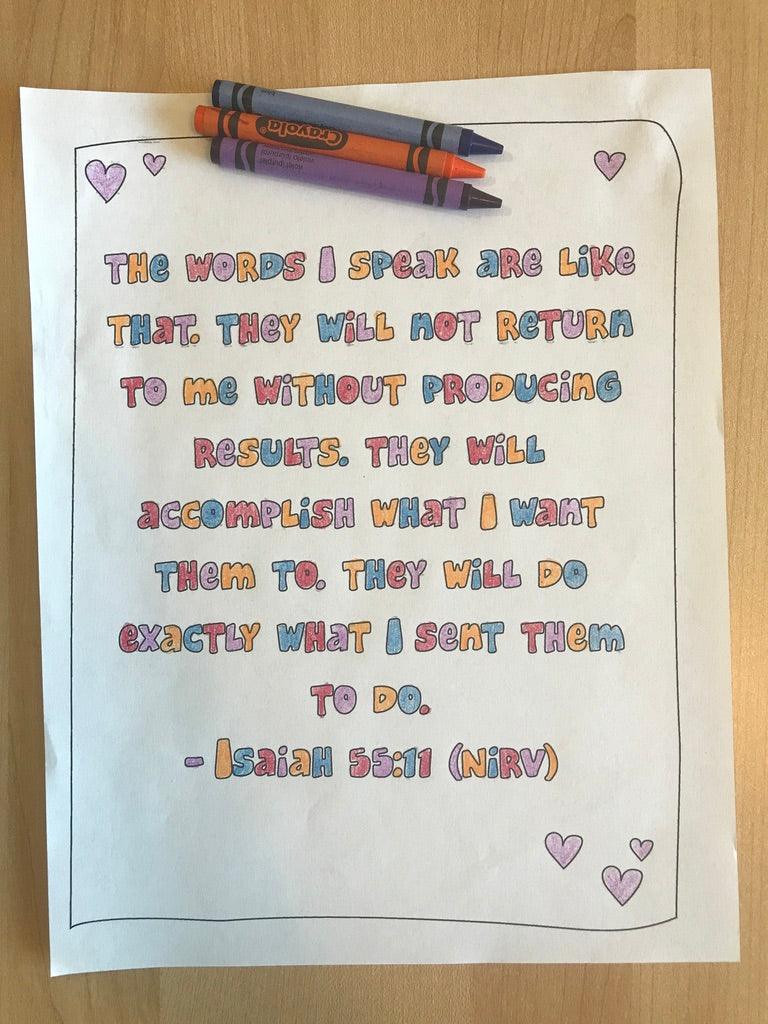 Crayola
violet (purple)
THE WORDS I SPEAK ARE LIKE
THAT. THEY WILL NOT RETURN
TO ME WITHOUT PRODUCING
RESULTS. THEY WILL
ACCOMPLISH WHAT I WANT
THEM TO. THEY WILL DO
EXACTLY WHAT I SENT THEM
TO DO.
- ISAIAH 55:11 (NIRV)